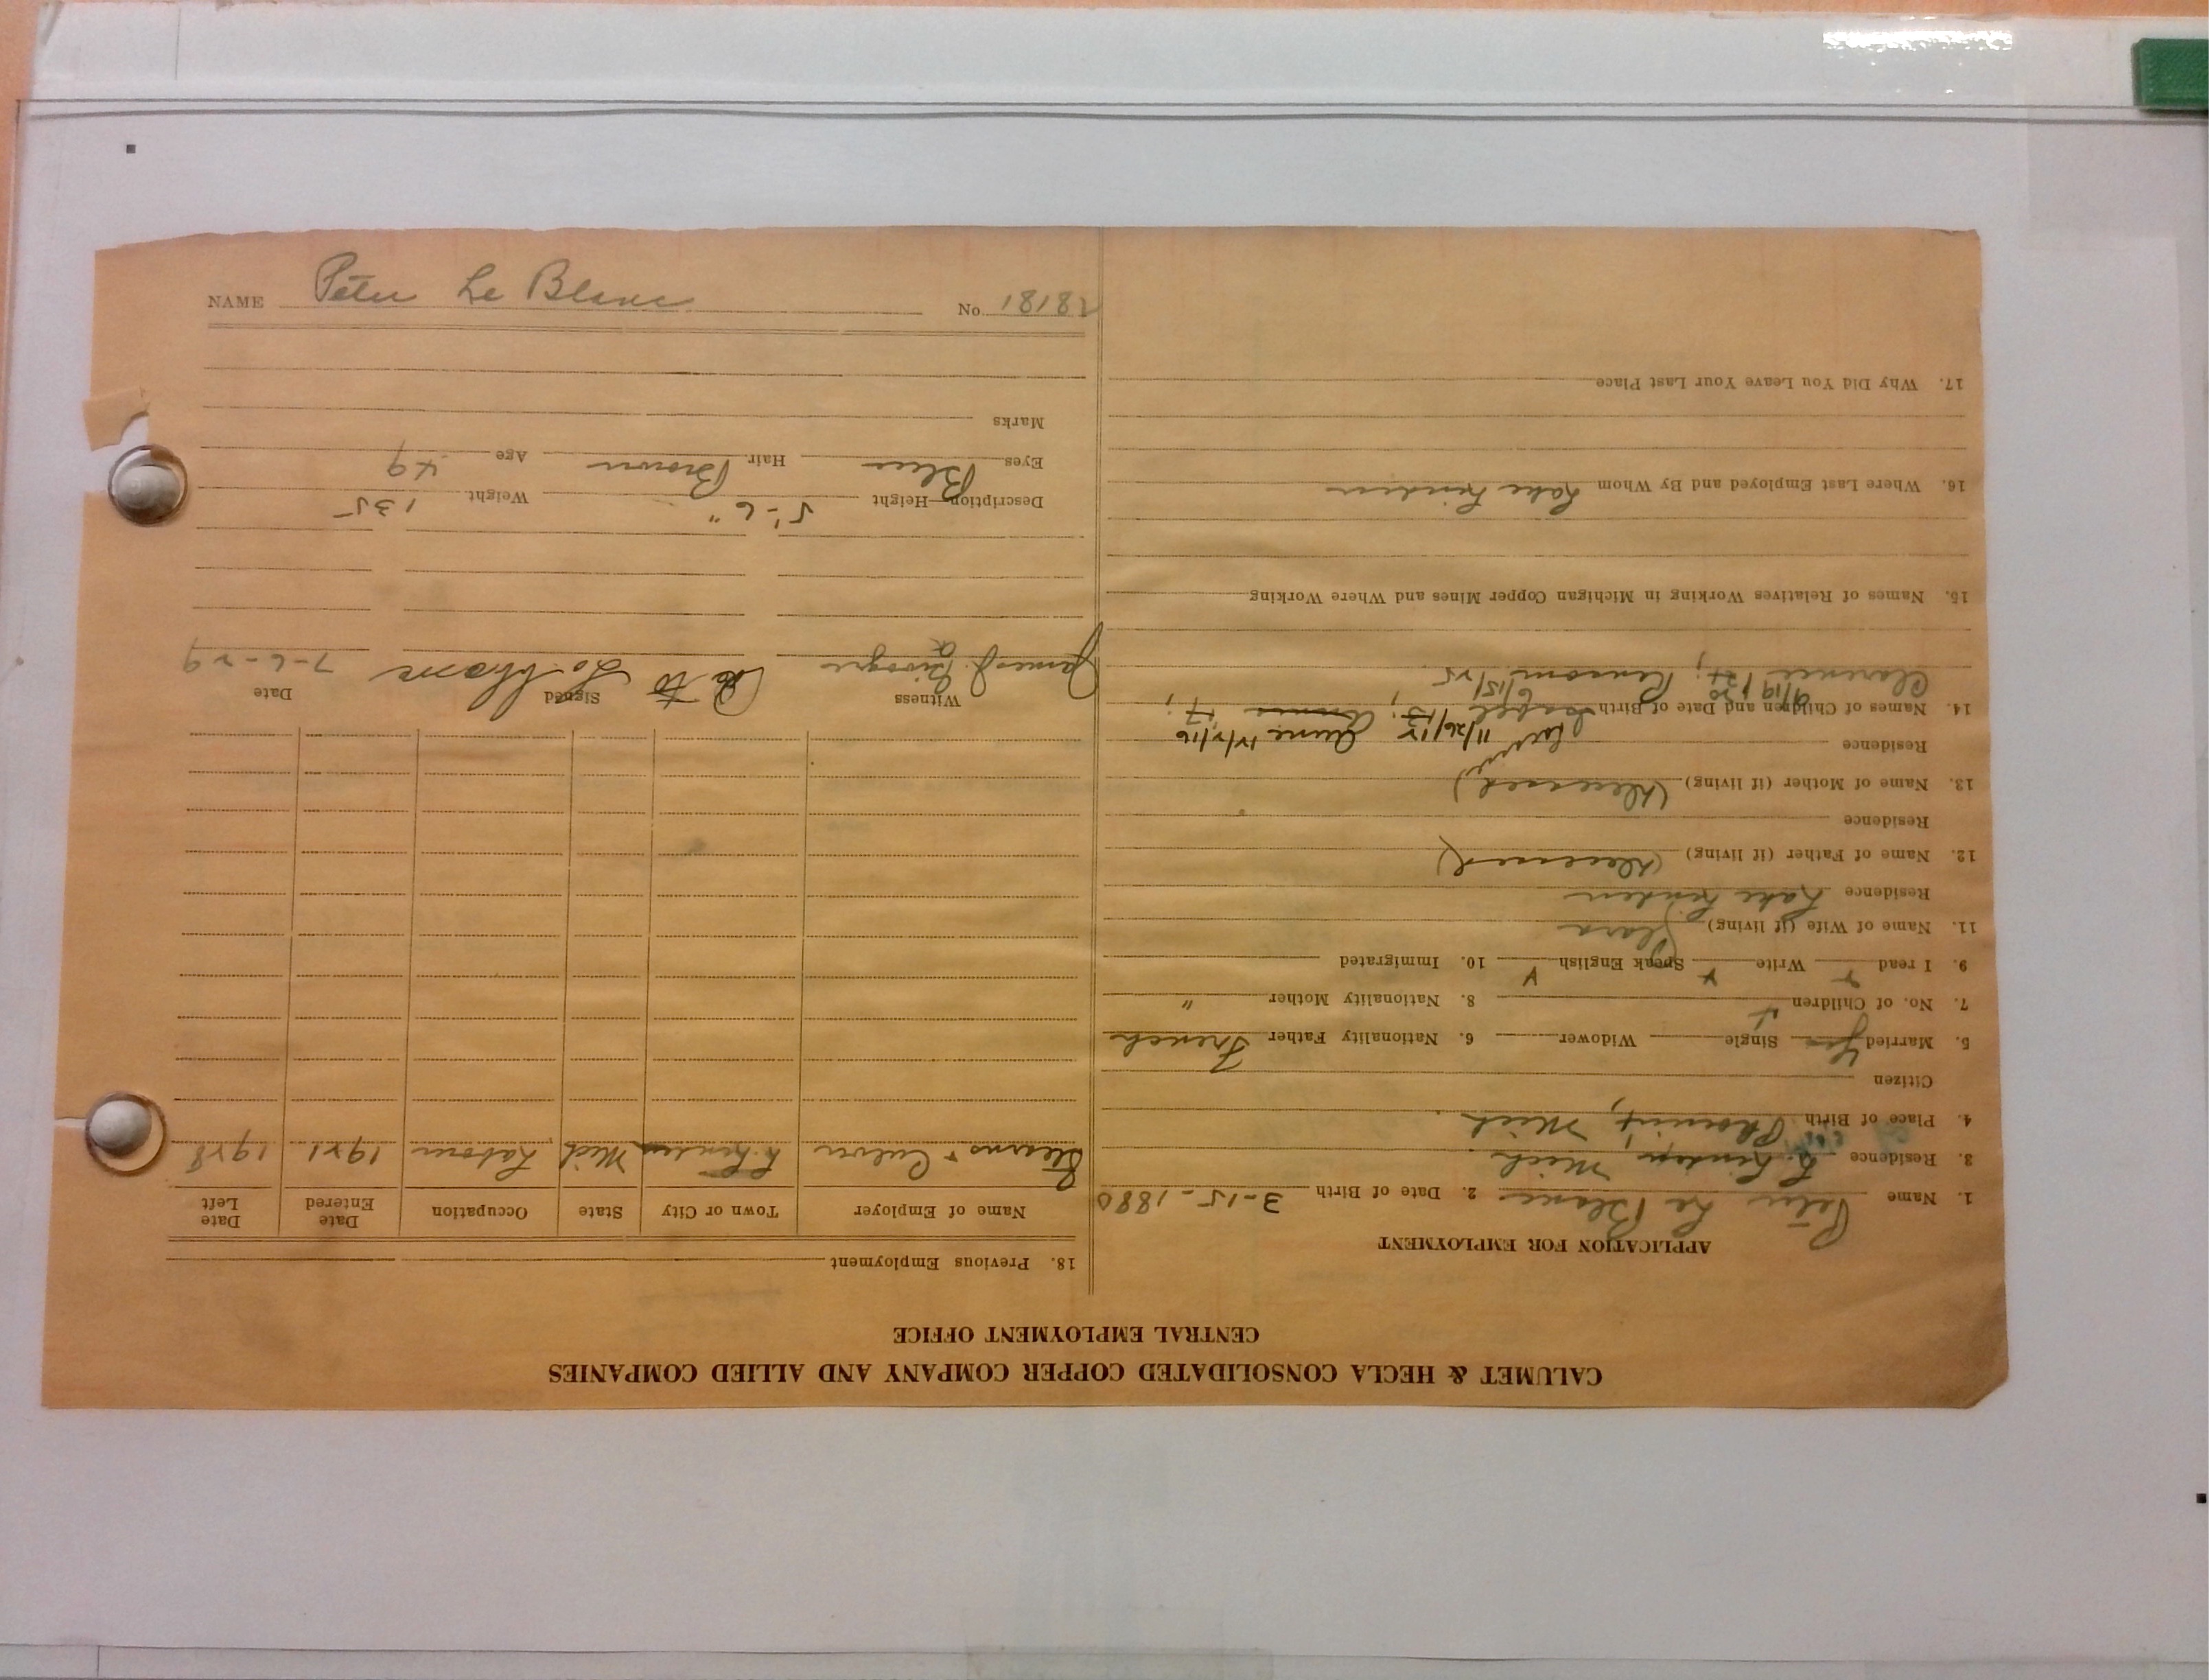 CALUMET & HECLA CONSOLIDATED COPPER COMPANY AND ALLIED COMPANIES
CENTRAL EMPLOYMENT OFFICE
APPLICATION FOR EMPLOYMENT
1. Name Peter Le Blanc 2. Date of Birth 3-15-1880
3. Residence L. Linden, Mich.
4. Place of Birth Phoenix, Mich.
Citizen
5. Married Yes Single Widower 6. Nationality Father French
7. No. of Children 4 8. Nationality Mother "
9. I read Write Speak English 10. Immigrated
11. Name of Wife (if living) Clara
Residence Lake Linden
12. Name of Father (if living) (Deceased)
Residence
13. Name of Mother (if living) (Deceased)
Residence
11/26/12 12/2/16
14. Names of Children and Date of Birth Isabel 13; 17;
Clarence 9/19/20; 6/15/25
15. Names of Relatives Working in Michigan Copper Mines and Where Working
16. Where Last Employed and By Whom Lake Linden
17. Why Did You Leave Your Last Place
18. Previous Employment
Name of Employer Town or City State Occupation Date Entered Date Left
Stearns & Culver L. Linden Mich Laborer 1921 1928
Witness Signed Date
James J. 7-6-29
Description—Height 5'-6" Weight 135
Eyes Blue Hair Brown Age 49
Marks
NAME Peter Le Blanc No. 18182